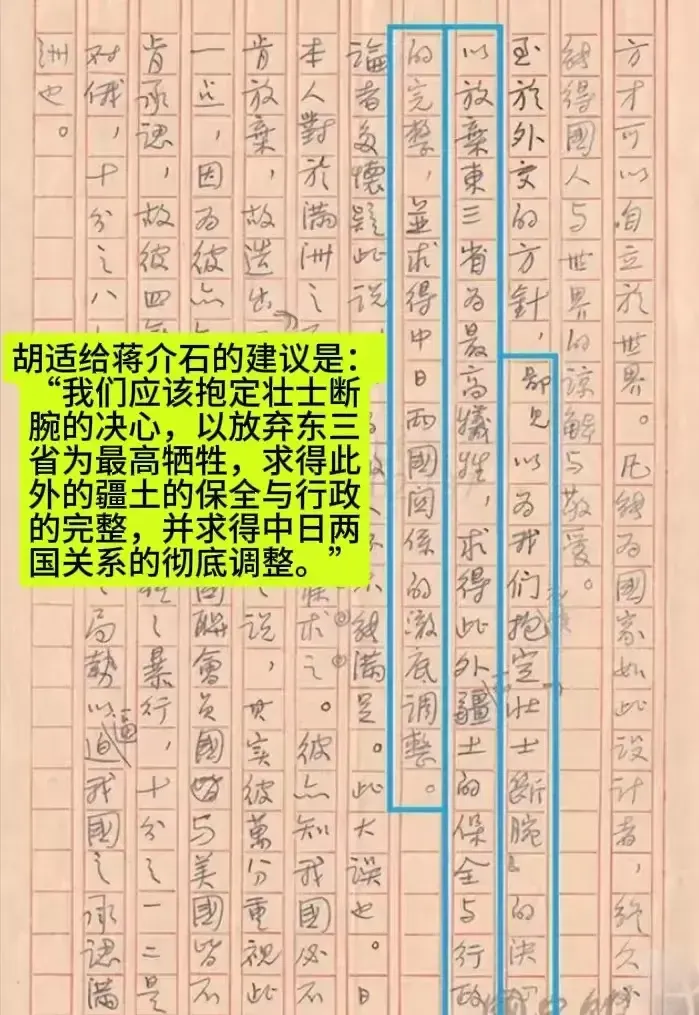 方才可以自立於世界。凡能為國家如此設計者，終久
能得國人与世界的諒解与敬爱。
至於外交的方針，鄙見以為我们抱定壮士断腕的决心
以放棄東三省為最高犧牲，求得此外疆土的保全与行政
的完整，並求得中日兩國関係的澈底調整。
論者多懷疑此说，能滿足。此大误也。日
本人對於满洲之求之。彼亦知我國必不
肯放棄，故造出说，其实彼萬分重視此
一点，因為彼亦聯會員國皆与美國皆不
肯承認，故彼四之暴行，十分之一二是
对俄，十分之八局勢以逼迫我國之承認满
洲也。
胡适给蒋介石的建议是：
“我们应该抱定壮士断
腕的决心，以放弃东三
省为最高牺牲，求得此
外的疆土的保全与行政
的完整，并求得中日两
国关系的彻底调整。”